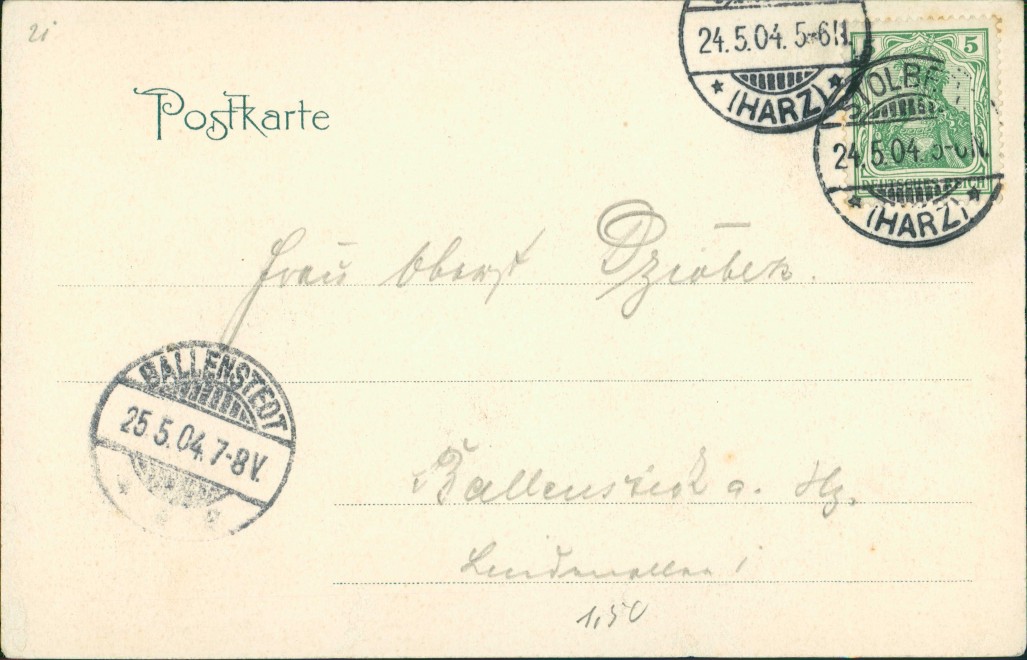 2i
24.5.04. 5-6N.
★ (HARZ) ★
5
DEUTSCHES REICH
STOLBE
24.5.04. 5-6N
★ (HARZ) ★
Postkarte
Frau Oberst Dziobek.
BALLENSTEDT
25.5.04. 7-8V.
Ballenstedt a. Hz.
Lindenallee 1
1,50